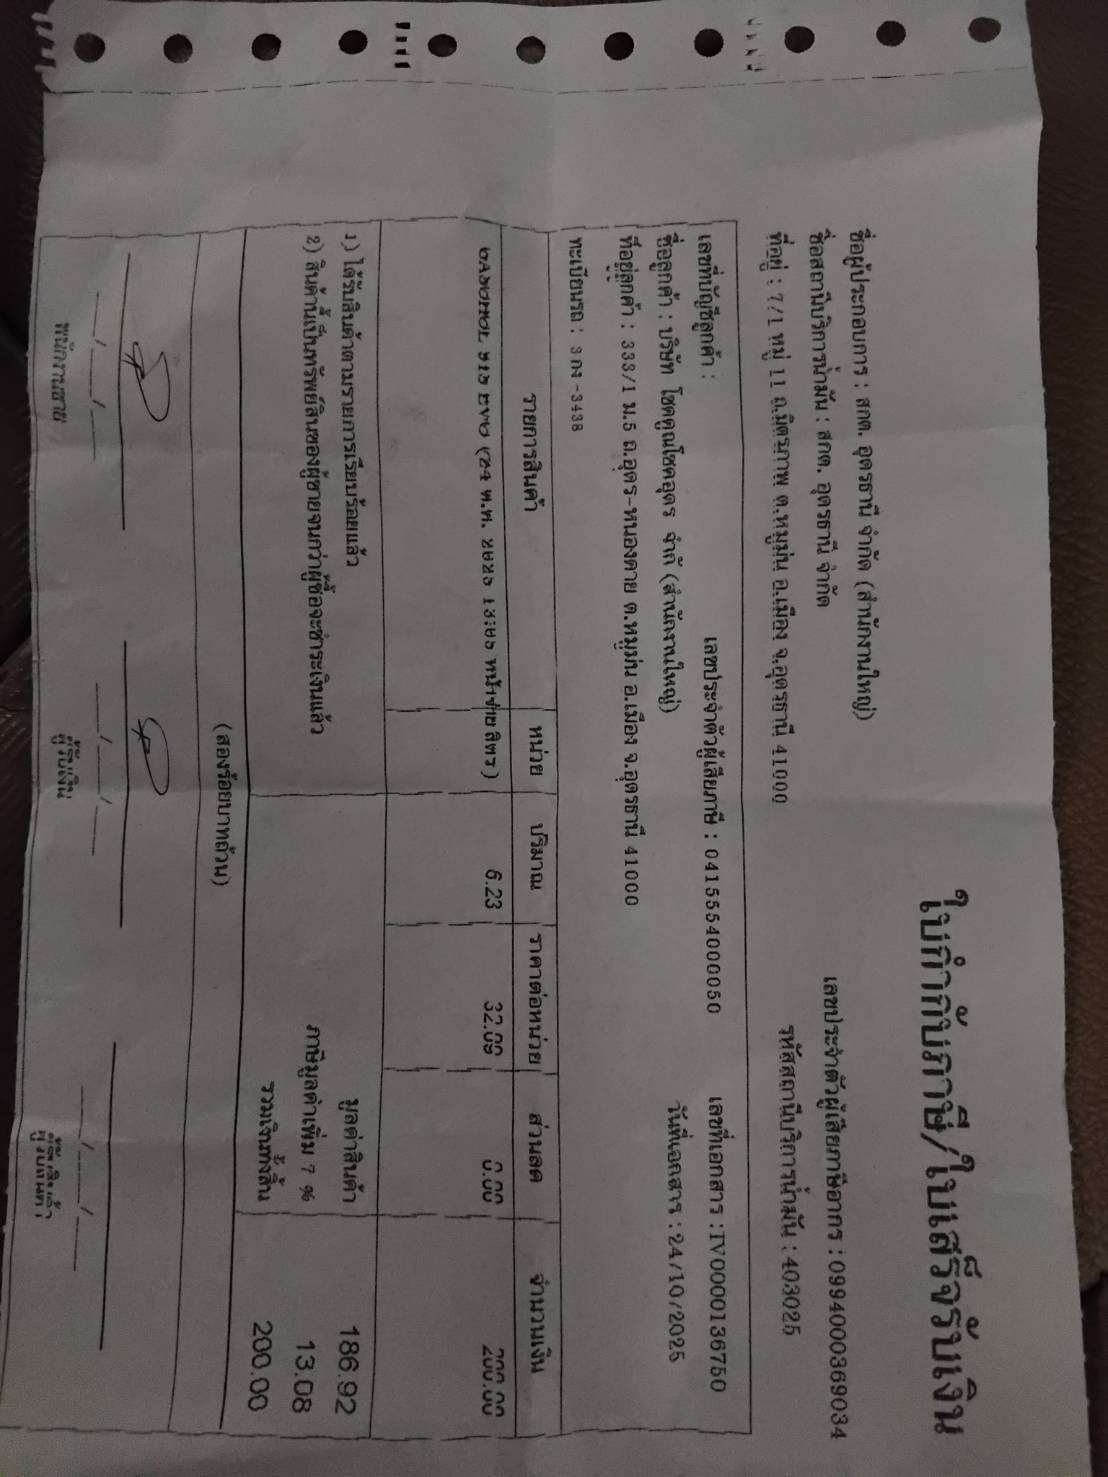 ใบกำกับภาษี/ใบเสร็จรับเงิน
ชื่อผู้ประกอบการ : สกต. อุดรธานี จำกัด (สำนักงานใหญ่)
เลขประจำตัวผู้เสียภาษีอากร : 0994000369034
ชื่อสถานีบริการน้ำมัน : สกต. อุดรธานี จำกัด
รหัสสถานีบริการน้ำมัน : 403025
ที่อยู่ : 7/1 หมู่ 11 ถ.มิตรภาพ ต.หมูม่น อ.เมือง จ.อุดรธานี 41000
เลขที่บัญชีลูกค้า : เลขประจำตัวผู้เสียภาษี : 0415554000050 เลขที่เอกสาร : TV0000136750
ชื่อลูกค้า : บริษัท โชคคูณโชคอุดร จำกั (สำนักงานใหญ่) วันที่เอกสาร : 24/10/2025
ที่อยู่ลูกค้า : 333/1 ม.5 ถ.อุดร-หนองคาย ต.หมูม่น อ.เมือง จ.อุดรธานี 41000
ทะเบียนรถ : 3 กง -3438
รายการสินค้า หน่วย ปริมาณ ราคาต่อหน่วย ส่วนลด จำนวนเงิน
GASOHOL EVO (24 ต.ค. ลิตร ) 6.23 32.09 0.00 200.00
1) ได้รับสินค้าตามรายการเรียบร้อยแล้ว มูลค่าสินค้า 186.92
2) สินค้านี้เป็นทรัพย์สินของผู้ขายจนกว่าผู้ซื้อจะชำระเงินแล้ว ภาษีมูลค่าเพิ่ม 7 % 13.08
รวมเงินทั้งสิ้น 200.00
(สองร้อยบาทถ้วน)
___/___/___ ___/___/___ ___/___/___
พนักงานขาย ผู้รับเงิน ผู้รับสินค้า